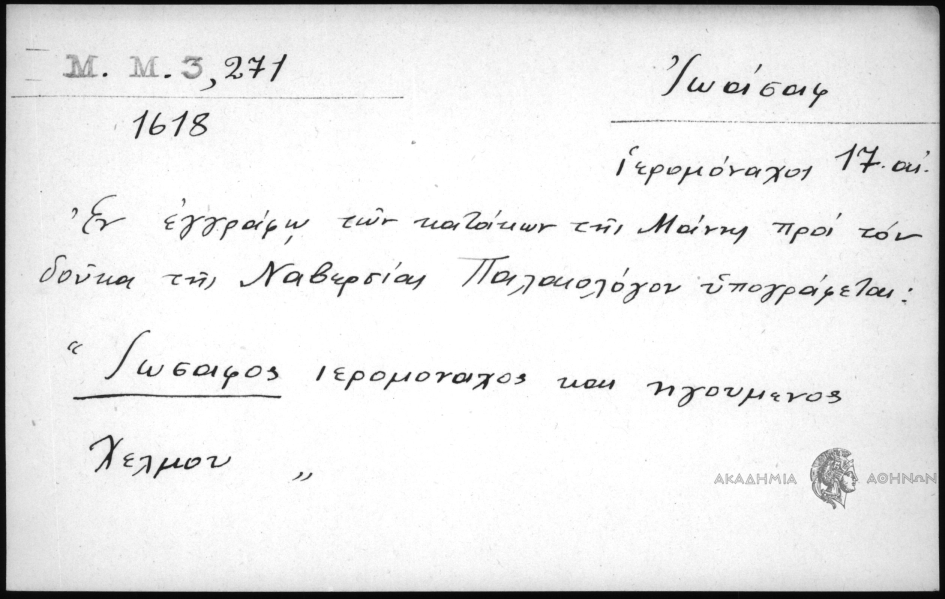 M. M. 3, 271
1618
Ἰωάσαφ
ἱερομόναχος 17. αἰ.
Ἐν ἐγγράφῳ τῶν κατοίκων τῆς Μάνης πρὸς τόν
δοῦκα τῆς Ναβερσίας Παλαιολόγον ὑπογράφεται:
“Ιωσαφος ιερομοναχος και ηγουμενος
Χελμου „
ΑΚΑΔΗΜΙΑ ΑΘΗΝΩΝ